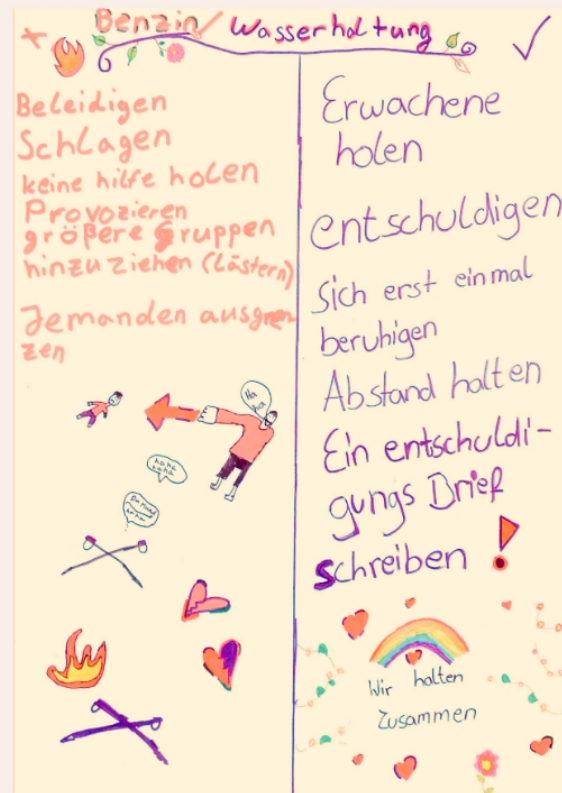 Benzin Wasserhaltung
Beleidigen
Schlagen
keine hilfe holen
Provozieren
größere Gruppen
hinzuziehen (Lästern)
Jemanden ausgren
zen
Ha
ha
haha
haha
Erwachene
holen
entschuldigen
Sich erst einmal
beruhigen
Abstand halten
Ein entschuldi-
gungs Brief
schreiben !
Wir halten
Zusammen